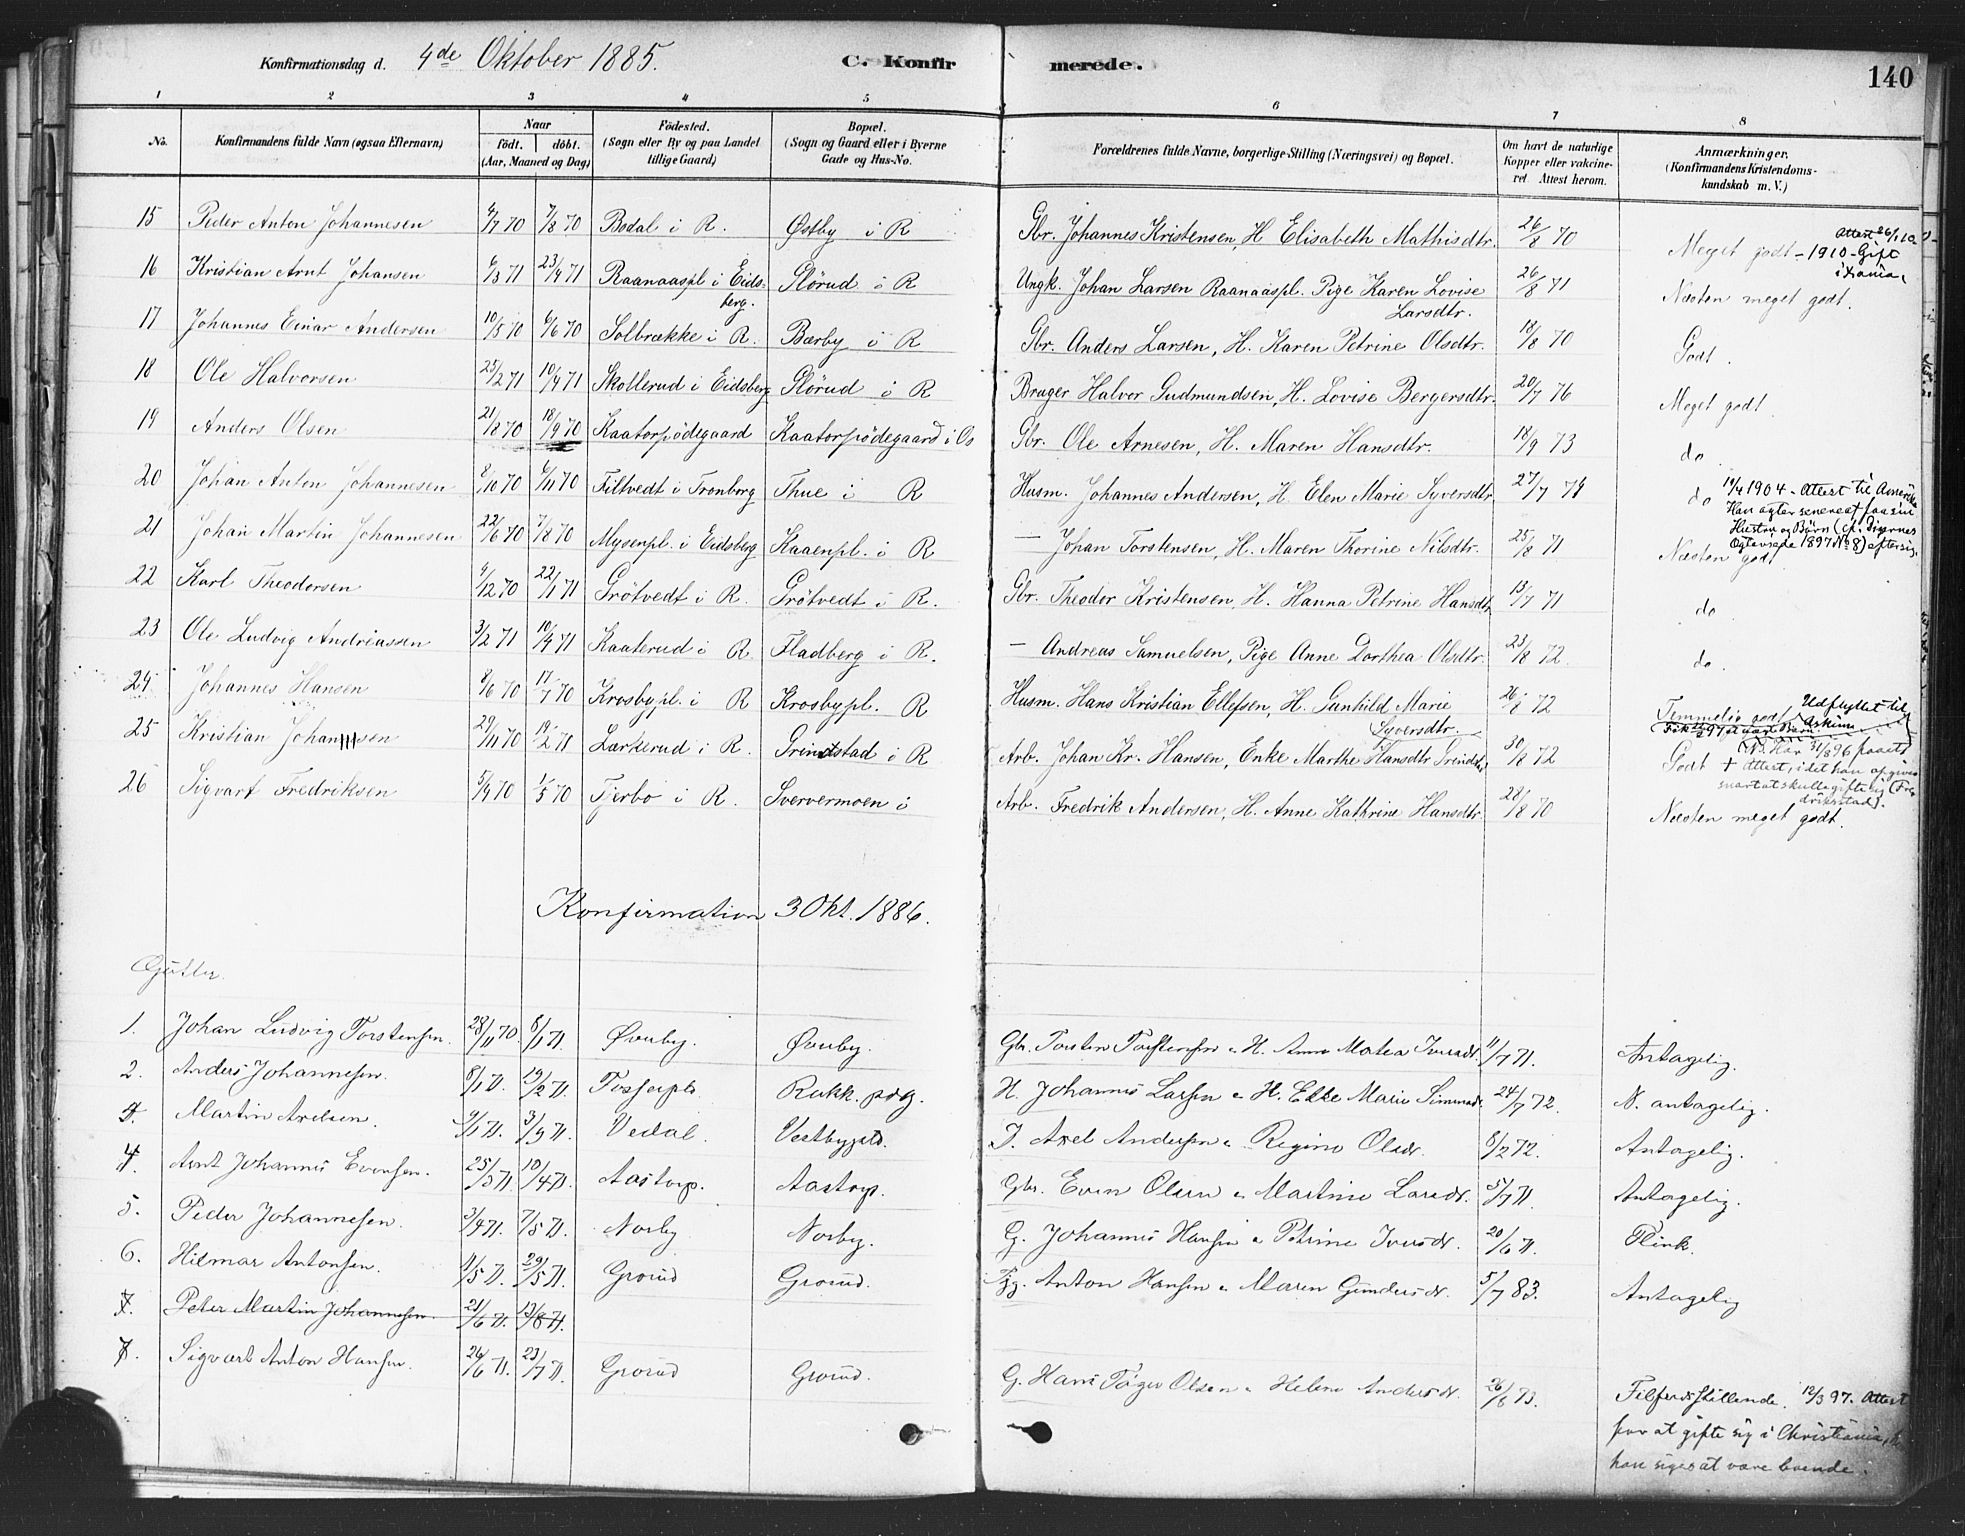 Konfirmationsdag d. 4de Oktober 1885. C. Konfirmerede. 140
1 2 3 4 5 6 7 8
No. Konfirmandens fulde Navn (ogsaa Efternavn) Naar født. døbt. (Aar, Maaned og Dag) Fødested. (Sogn eller By og paa Landet tillige Gaard) Bopæl. (Sogn og Gaard eller i Byerne Gade og Hus-No. Forældrenes fulde Navne, borgerlige Stilling (Næringsvei) og Bopæl. Om havt de naturlige Kopper eller vakcineret. Attest herom. Anmærkninger. (Konfirmandens Kristendomskundskab m. V.)
15 Peder Anton Johannesen 4/7 70 7/8 70 Bodal i R. Østby i R Gbr. Johannes Kristensen, H. Elisabeth Mathisdtr. 26/8 70 Meget godt - 1910 - Gift i Xania. Attest 26/1 10
16 Kristian Arnt Johansen 6/3 71 23/4 71 Raanaaspl i Eidsberg. Slörud i R Ungk. Johan Larsen Raanaaspl. Pige Karen Lovise Larsdtr. 26/8 71 Næsten meget godt.
17 Johannes Einar Andersen 10/5 70 6/6 70 Solbrække i R. Bærby i R Gbr. Anders Larsen, H. Karen Petrine Olsdtr. 18/8 70 Godt.
18 Ole Halvorsen 25/2 71 10/4 71 Skollerud i Eidsberg Slörud i R Bruger Halvor Gudmundsen, H. Lovise Bergersdtr. 20/7 76 Meget godt.
19 Anders Olsen 21/8 70 18/9 70 Kaatorpödegaard Kaatorpödegaard i Os Gbr. Ole Arnesen, H. Maren Hansdtr. 18/9 73 do.
20 Johan Anton Johannesen 8/10 70 6/11 70 Filtvedt i Tronborg Thue i R Husm. Johannes Andersen, H. Elen Marie Syversdtr 27/7 74 do 19/4 1904 - Attest til Amerika Han agter senere at faa sin Hustru og Börn (cf. Digernes Oplevede 1897 No 8) efter sig.
21 Johan Martin Johannesen 22/6 70 7/8 70 Mysenpl. i Eidsberg Kaaenpl. i R — Johan Torstensen, H. Maren Thorine Nilsdtr. 25/8 71 Næsten godt
22 Karl Theodorsen 4/12 70 22/1 71 Grötvedt i R. Grötvedt i R. Gbr. Theodor Kristensen, H. Hanna Petrine Hansdtr 13/7 71 do.
23 Ole Ludvig Andreassen 3/2 71 10/4 71 Kaaterud i R Fladberg i R. — Andreas Samuelsen, Pige Anne Dorthea Olsdtr. 23/8 72 do.
24 Johannes Hansen 8/6 70 17/7 70 Krosbypl. i R Krosbypl. R Husm. Hans Kristian Ellefsen, H. Gunhild Marie Syversdtr. 26/8 72 Temmelig godt. Udflyttet til Askim
25 Kristian Johansen 29/11 70 19/2 71 Lærkerud i R. Grindstad i R Arb. Johan Kr. Hansen, Enke Marthe Hansdtr Grindst. 30/8 72 Godt + NB. Har 31/8 96 faaet Attest, idet han opgives snart at skulle gifte sig (Fredriksstad).
26 Sigvart Fredriksen 5/4 70 1/5 70 Tjerbo i R. Sververmoen i Arb. Fredrik Andersen, H. Anne Kathrine Hansdtr. 28/8 70 Næsten meget godt.
Konfirmation 3 Okt. 1886.
Gutter.
1. Johan Ludvig Torstensen. 28/11 70 8/1 71. Øvuby. Øvuby. Gbr. Torsten Torstensen o H. Anne Matea Iversdr. 11/7 71. Antagelig.
2. Anders Johannesen. 8/1 71. 19/2 71. Fosserpl. Rukk. pdg. H. Johannes Larsen o H. Elle Marie Simensdr. 24/7 72. N. antagelig.
3. Martin Axelsen. 9/1 71. 3/9 71. Vedal. Vestbypl. I. Axel Andersen o Regine Olsdr. 8/2 72. Antagelig.
4. Arnt Johannes Evensen. 25/3 71. 10/4 71. Aastorp. Aastorp. Gbr. Even Olsen o Martine Larsdr. 5/7 71. Antagelig.
5. Peder Johannesen. 3/4 71. 7/5 71. Norby Norby. G. Johannes Hansen o Petrine Iversdr. 20/6 71. Flink.
6. Hilmar Antonsen. 1/5 71. 29/5 71. Grorud Grorud. Anton Hansen o Maren Gundersdr. 5/7 83. Antagelig
7. Peter Martin Johannesen. 21/6 71. 13/8 71.
7. Sigvart Anton Hansen. 26/6 71. 23/7 71. Grorud Grorud. G. Hans Tøger Olsen o Helene Andersdr. 26/6 73. Tilfredsstillende. 12/3 97. Attest for at gifte sig i Christiania, han siges at være boende.